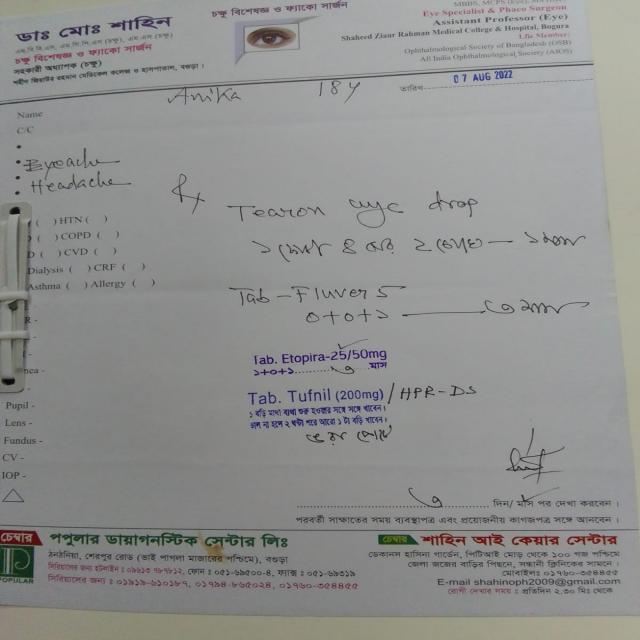 ডাঃ মোঃ শাহিন
চক্ষু বিশেষজ্ঞ ও ফ্যাকো সার্জন
সহকারী অধ্যাপক (চক্ষু)
শহীদ জিয়াউর রহমান মেডিকেল কলেজ ও হাসপাতাল, বগুড়া।
চক্ষু বিশেষজ্ঞ ও ফ্যাকো সার্জন
Eye Specialist & Phaco Surgeon
Assistant Professor (Eye)
Shaheed Ziaur Rahman Medical College & Hospital, Bogura
Life Member:
Ophthalmological Society of Bangladesh (OSB)
All India Ophthalmological Society (AIOS)
তারিখ
07 AUG 2022
Name
Anika
18y
C/C
• Eyeache
• Headache
Rx
Tearon eye drop
( ) HTN ( )
( ) COPD ( )
( ) CVD ( )
Dialysis ( ) CRF ( )
Asthma ( ) Allergy ( )
Tab - Fluver 5
০+০+১ ৩ মাস
Tab. Etopira-25/50mg
১+০+১ ৩ মাস
Tab. Tufnil (200mg) / HPR-DS
১ বড়ি মাথা ব্যথা শুরু হওয়ার সঙ্গে সঙ্গে খাবেন।
ভাল না হলে ২ ঘন্টা পরে আরো ১ টা বড়ি খাবেন।
ভরা পেটে
Pupil -
Lens -
Fundus -
CV -
IOP -
৩ দিন/ মাস পর দেখা করবেন।
পরবর্তী সাক্ষাতের সময় ব্যবস্থাপত্র এবং প্রয়োজনীয় কাগজপত্র সঙ্গে আনবেন।
চেম্বার
পপুলার ডায়াগনস্টিক সেন্টার লিঃ
ঠনঠনিয়া, শেরপুর রোড (ভাই পাগলা মাজারের পশ্চিমে), বগুড়া
POPULAR
চেম্বার
শাহিন আই কেয়ার সেন্টার
ডেকানস হাসিনা গার্ডেন, পিটিআই মোড় থেকে ১০০ গজ পশ্চিমে
জেলা জজের বাড়ির পিছনে, সন্ধানী ক্লিনিকের সামনে।
মোবাইলঃ ০১৭৬০-৩৫৪৪৫৫
E-mail shahinoph2009@gmail.com
রোগী দেখার সময় : প্রতিদিন ২.৩০ মিঃ থেকে